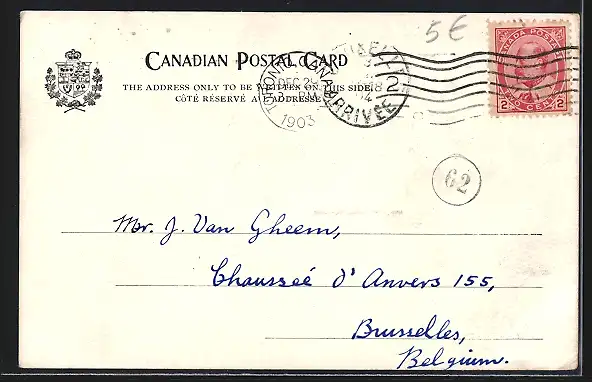 5€
CANADIAN POSTAL CARD
THE ADDRESS ONLY TO BE WRITTEN ON THIS SIDE.
CÔTÉ RÉSERVÉ A L'ADRESSE
TORONTO CANADA
DEC 29
1903
ARRIVÉE
14
2
CANADA POSTAGE
2 TWO CENTS 2
62
Mr. J. Van Gheem,
Chausseé d'Anvers 155,
Brusselles,
Belgium.